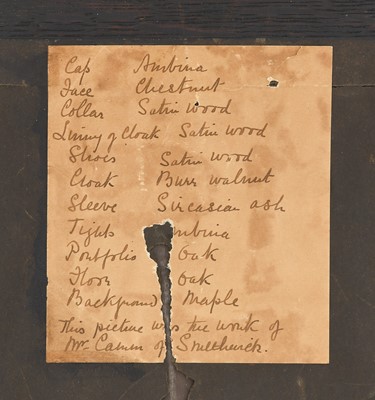 Cap Ambina
Face Chestnut
Collar Satin wood
Lining of Cloak Satin wood
Shoes Satin wood
Cloak Burr walnut
Sleeve Sircasian ash
Tights mbina
Portfolio Oak
Floor Oak
Background Maple
This picture was the work of
Mr. Camm of Smethwick.